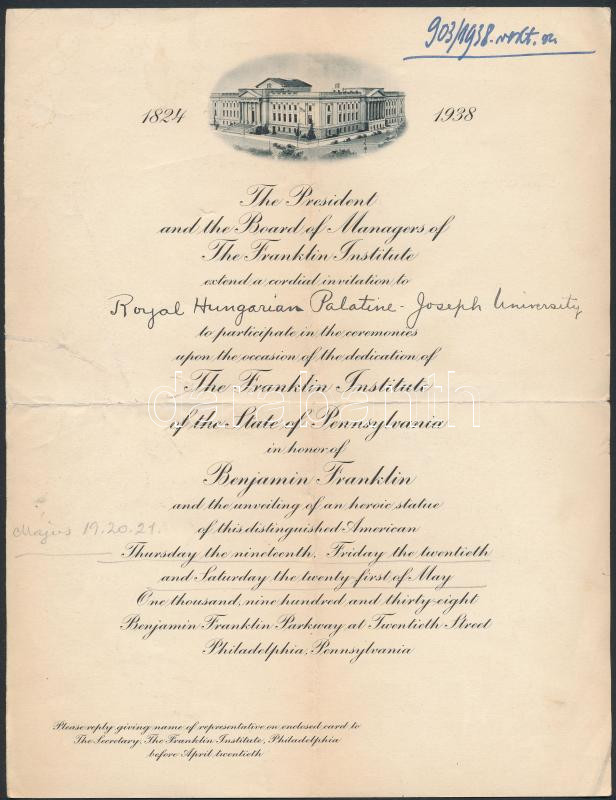 903/1938.
1824 1938
The President
and the Board of Managers of
The Franklin Institute
extend a cordial invitation to
Royal Hungarian Palatine-Joseph University
to participate in the ceremonies
upon the occasion of the dedication of
The Franklin Institute
darabanth
of the State of Pennsylvania
in honor of
Benjamin Franklin
and the unveiling of an heroic statue
of this distinguished American
Május 19.20.21.
Thursday the nineteenth, Friday the twentieth
and Saturday the twenty-first of May
One thousand, nine hundred and thirty-eight
Benjamin Franklin Parkway at Twentieth Street
Philadelphia, Pennsylvania
Please reply giving name of representative on enclosed card to
The Secretary, The Franklin Institute, Philadelphia
before April twentieth